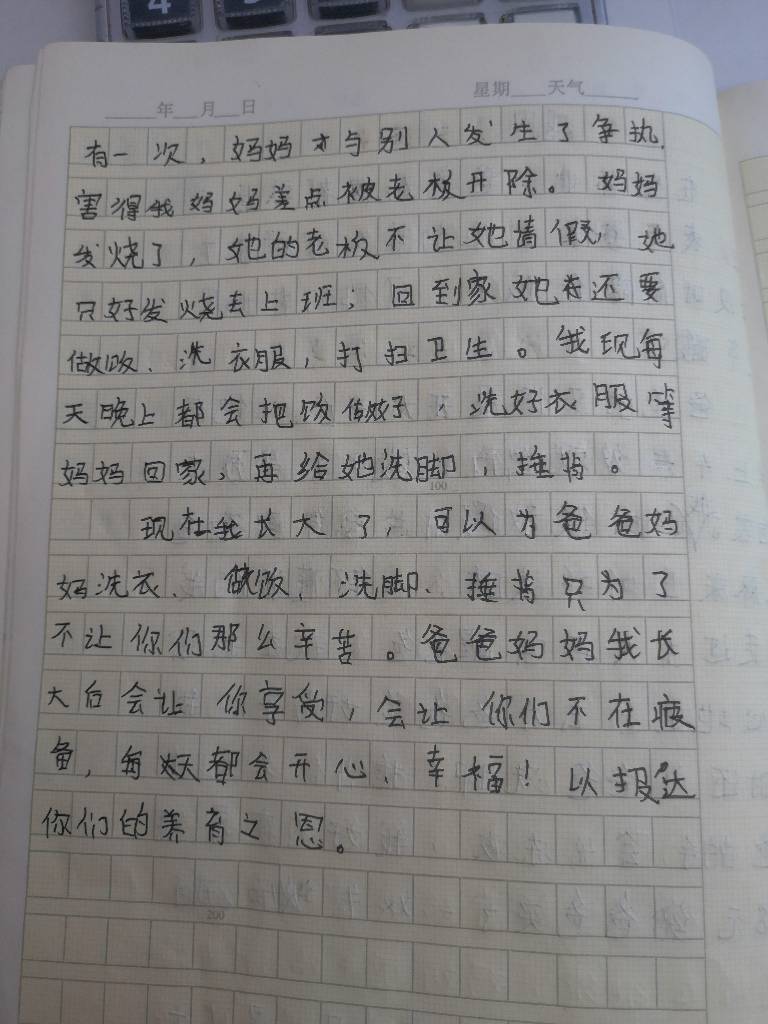 4
年 月 日 星期 天气
有一次，妈妈才与别人发生了争执，
害得我妈妈差点被老板开除。妈妈
发烧了，她的老板不让她请假，她
只好发烧去上班；回到家她还要
做饭、洗衣服，打扫卫生。我现每
天晚上都会把饭做好，洗好衣服等
妈妈回家，再给她洗脚，捶背。
100
现在我长大了，可以为爸爸妈
妈洗衣、做饭、洗脚、捶背只为了
不让你们那么辛苦。爸爸妈妈我长
大后会让你享受，会让你们不在疲
鱼，每天都会开心、幸福！以报达
你们的养育之恩。
200